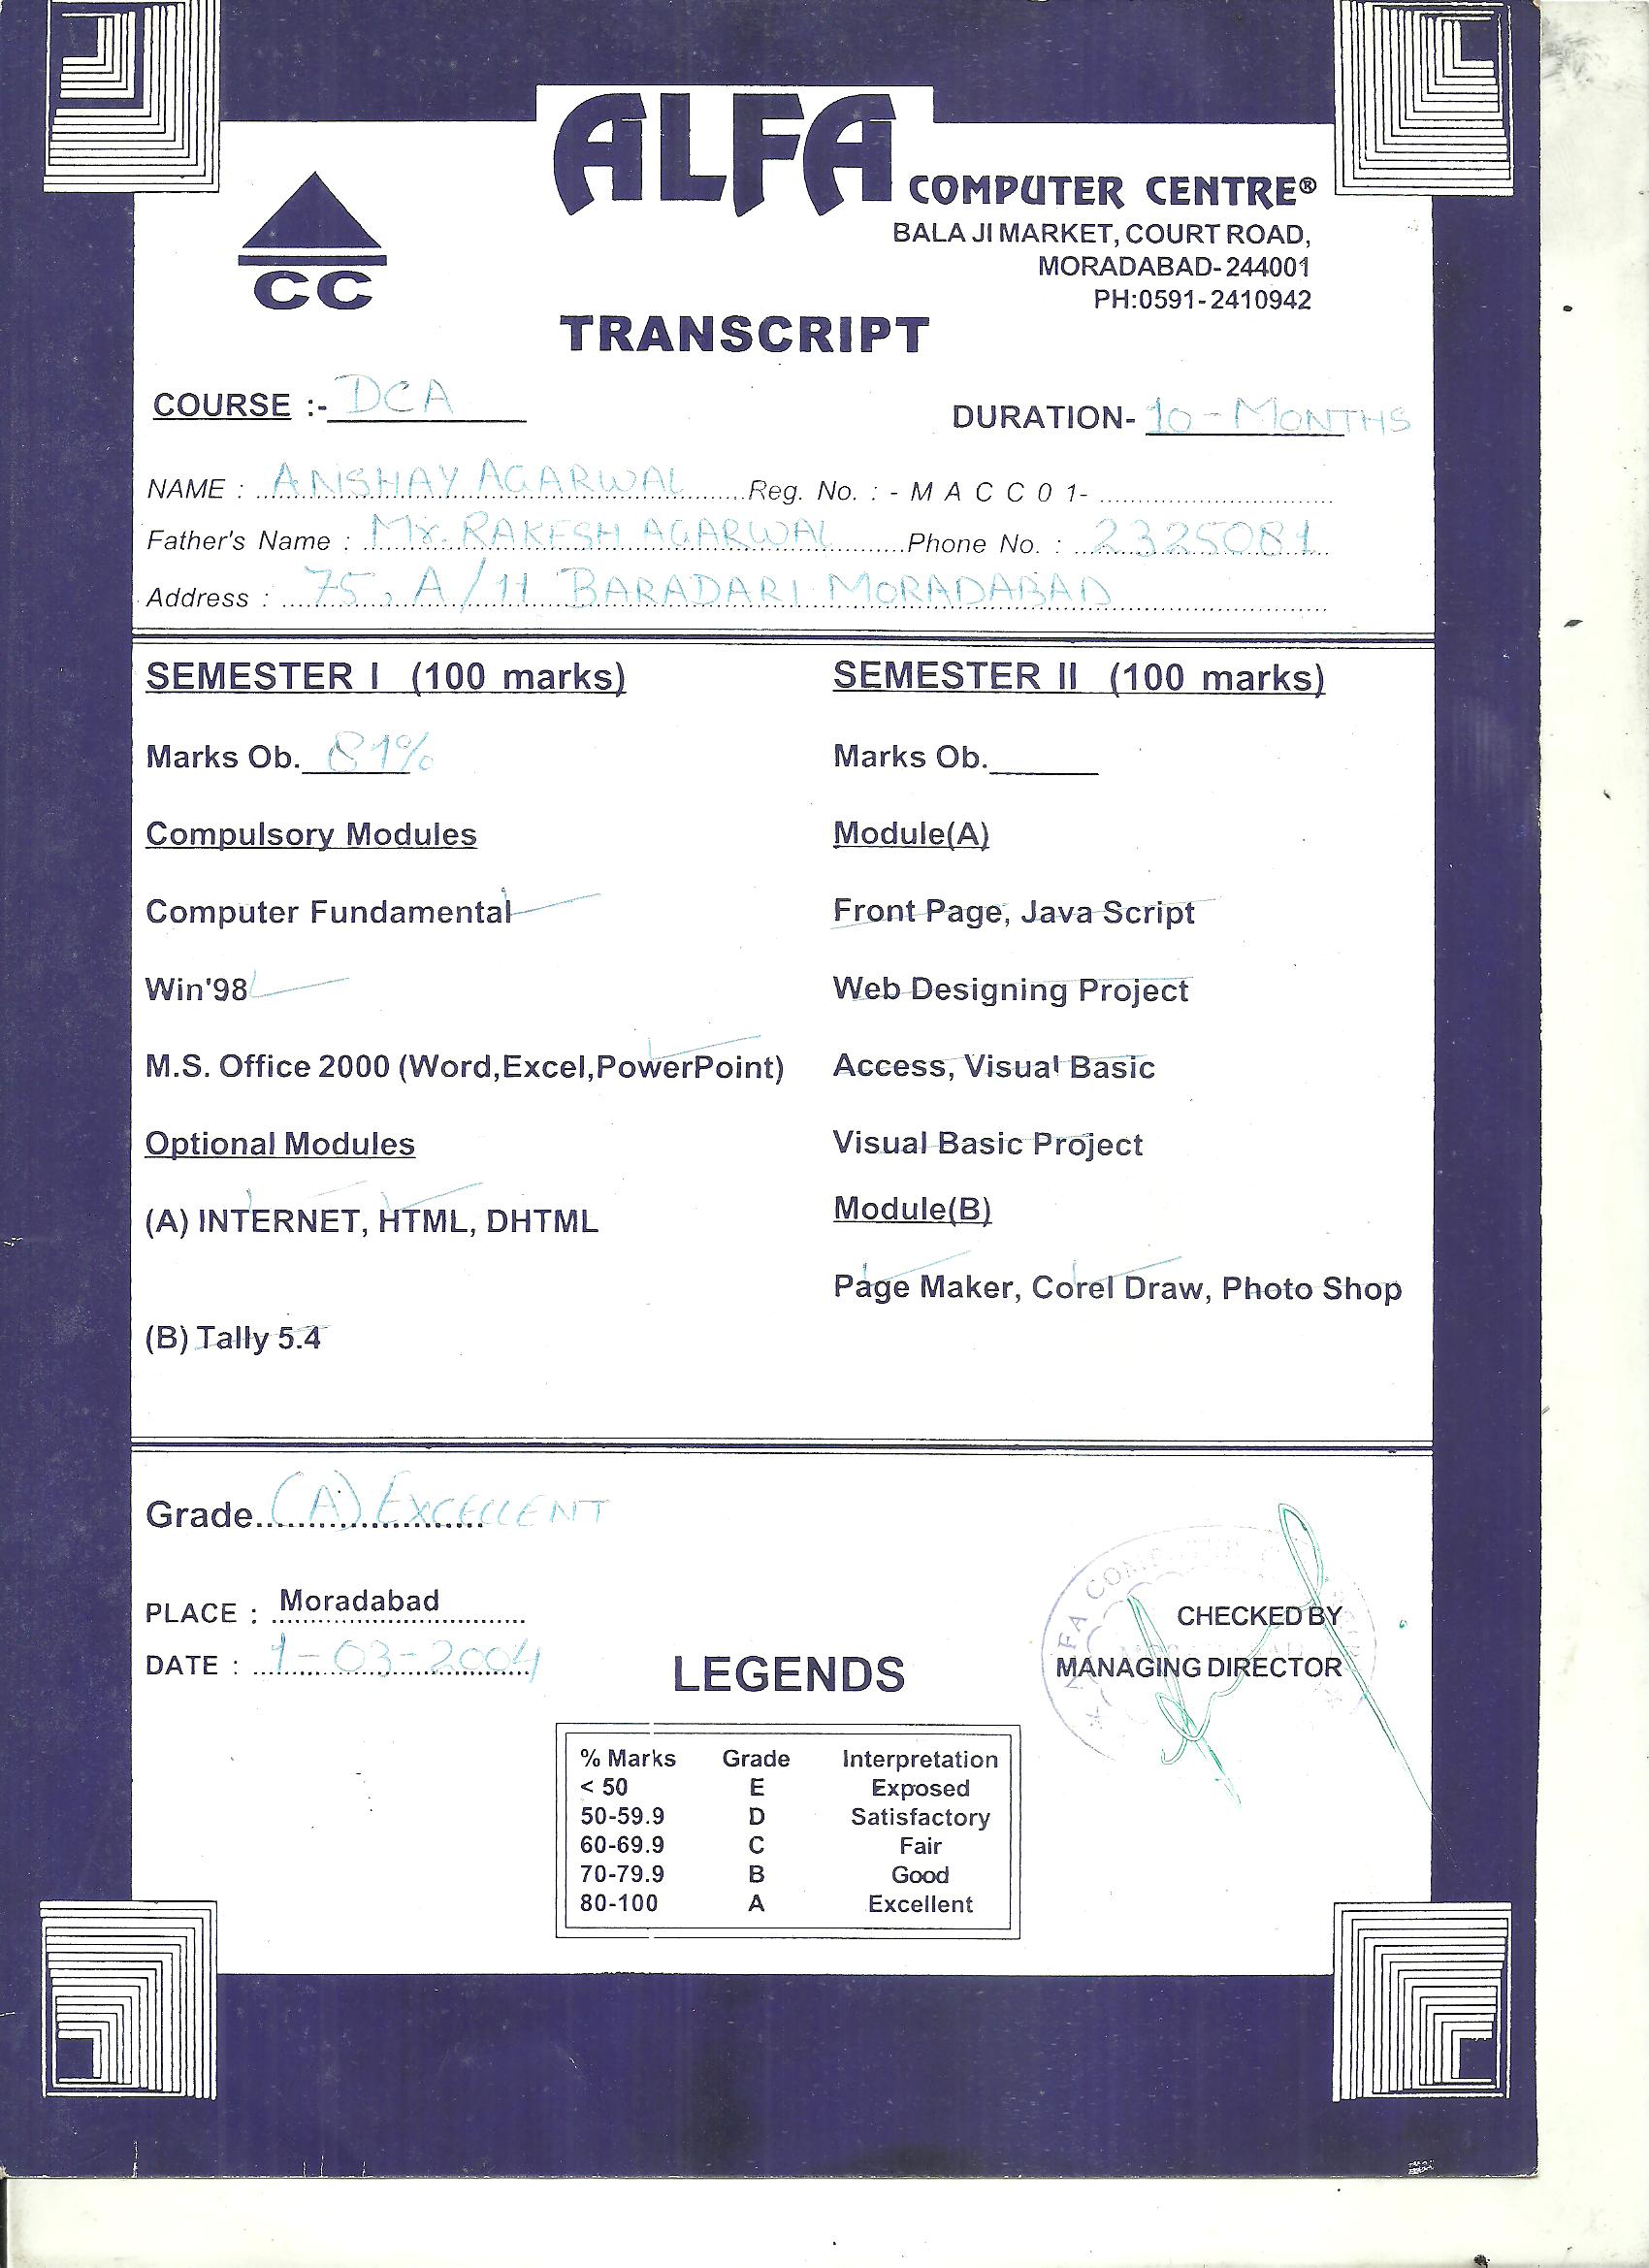 ALFA
COMPUTER CENTRE®
BALA JI MARKET, COURT ROAD,
MORADABAD-244001
PH:0591-2410942
CC
TRANSCRIPT
COURSE :- DCA
DURATION- 10-MONTHS
NAME : ANSHAY AGARWAL Reg. No. : - M A C C 0 1-
Father's Name : Mr. RAKESH AGARWAL Phone No. : 2325081
Address : 75, A/11 BARADARI MORADABAD
SEMESTER I (100 marks)
Marks Ob. 81%
Compulsory Modules
Computer Fundamental
Win'98
M.S. Office 2000 (Word,Excel,PowerPoint)
Optional Modules
(A) INTERNET, HTML, DHTML
(B) Tally 5.4
SEMESTER II (100 marks)
Marks Ob.
Module(A)
Front Page, Java Script
Web Designing Project
Access, Visual Basic
Visual Basic Project
Module(B)
Page Maker, Corel Draw, Photo Shop
Grade (A) EXCELLENT
PLACE : Moradabad
DATE : 1-03-2004
ALFA COMPUTER
CHECKED BY
MANAGING DIRECTOR
LEGENDS
% Marks Grade Interpretation
< 50 E Exposed
50-59.9 D Satisfactory
60-69.9 C Fair
70-79.9 B Good
80-100 A Excellent